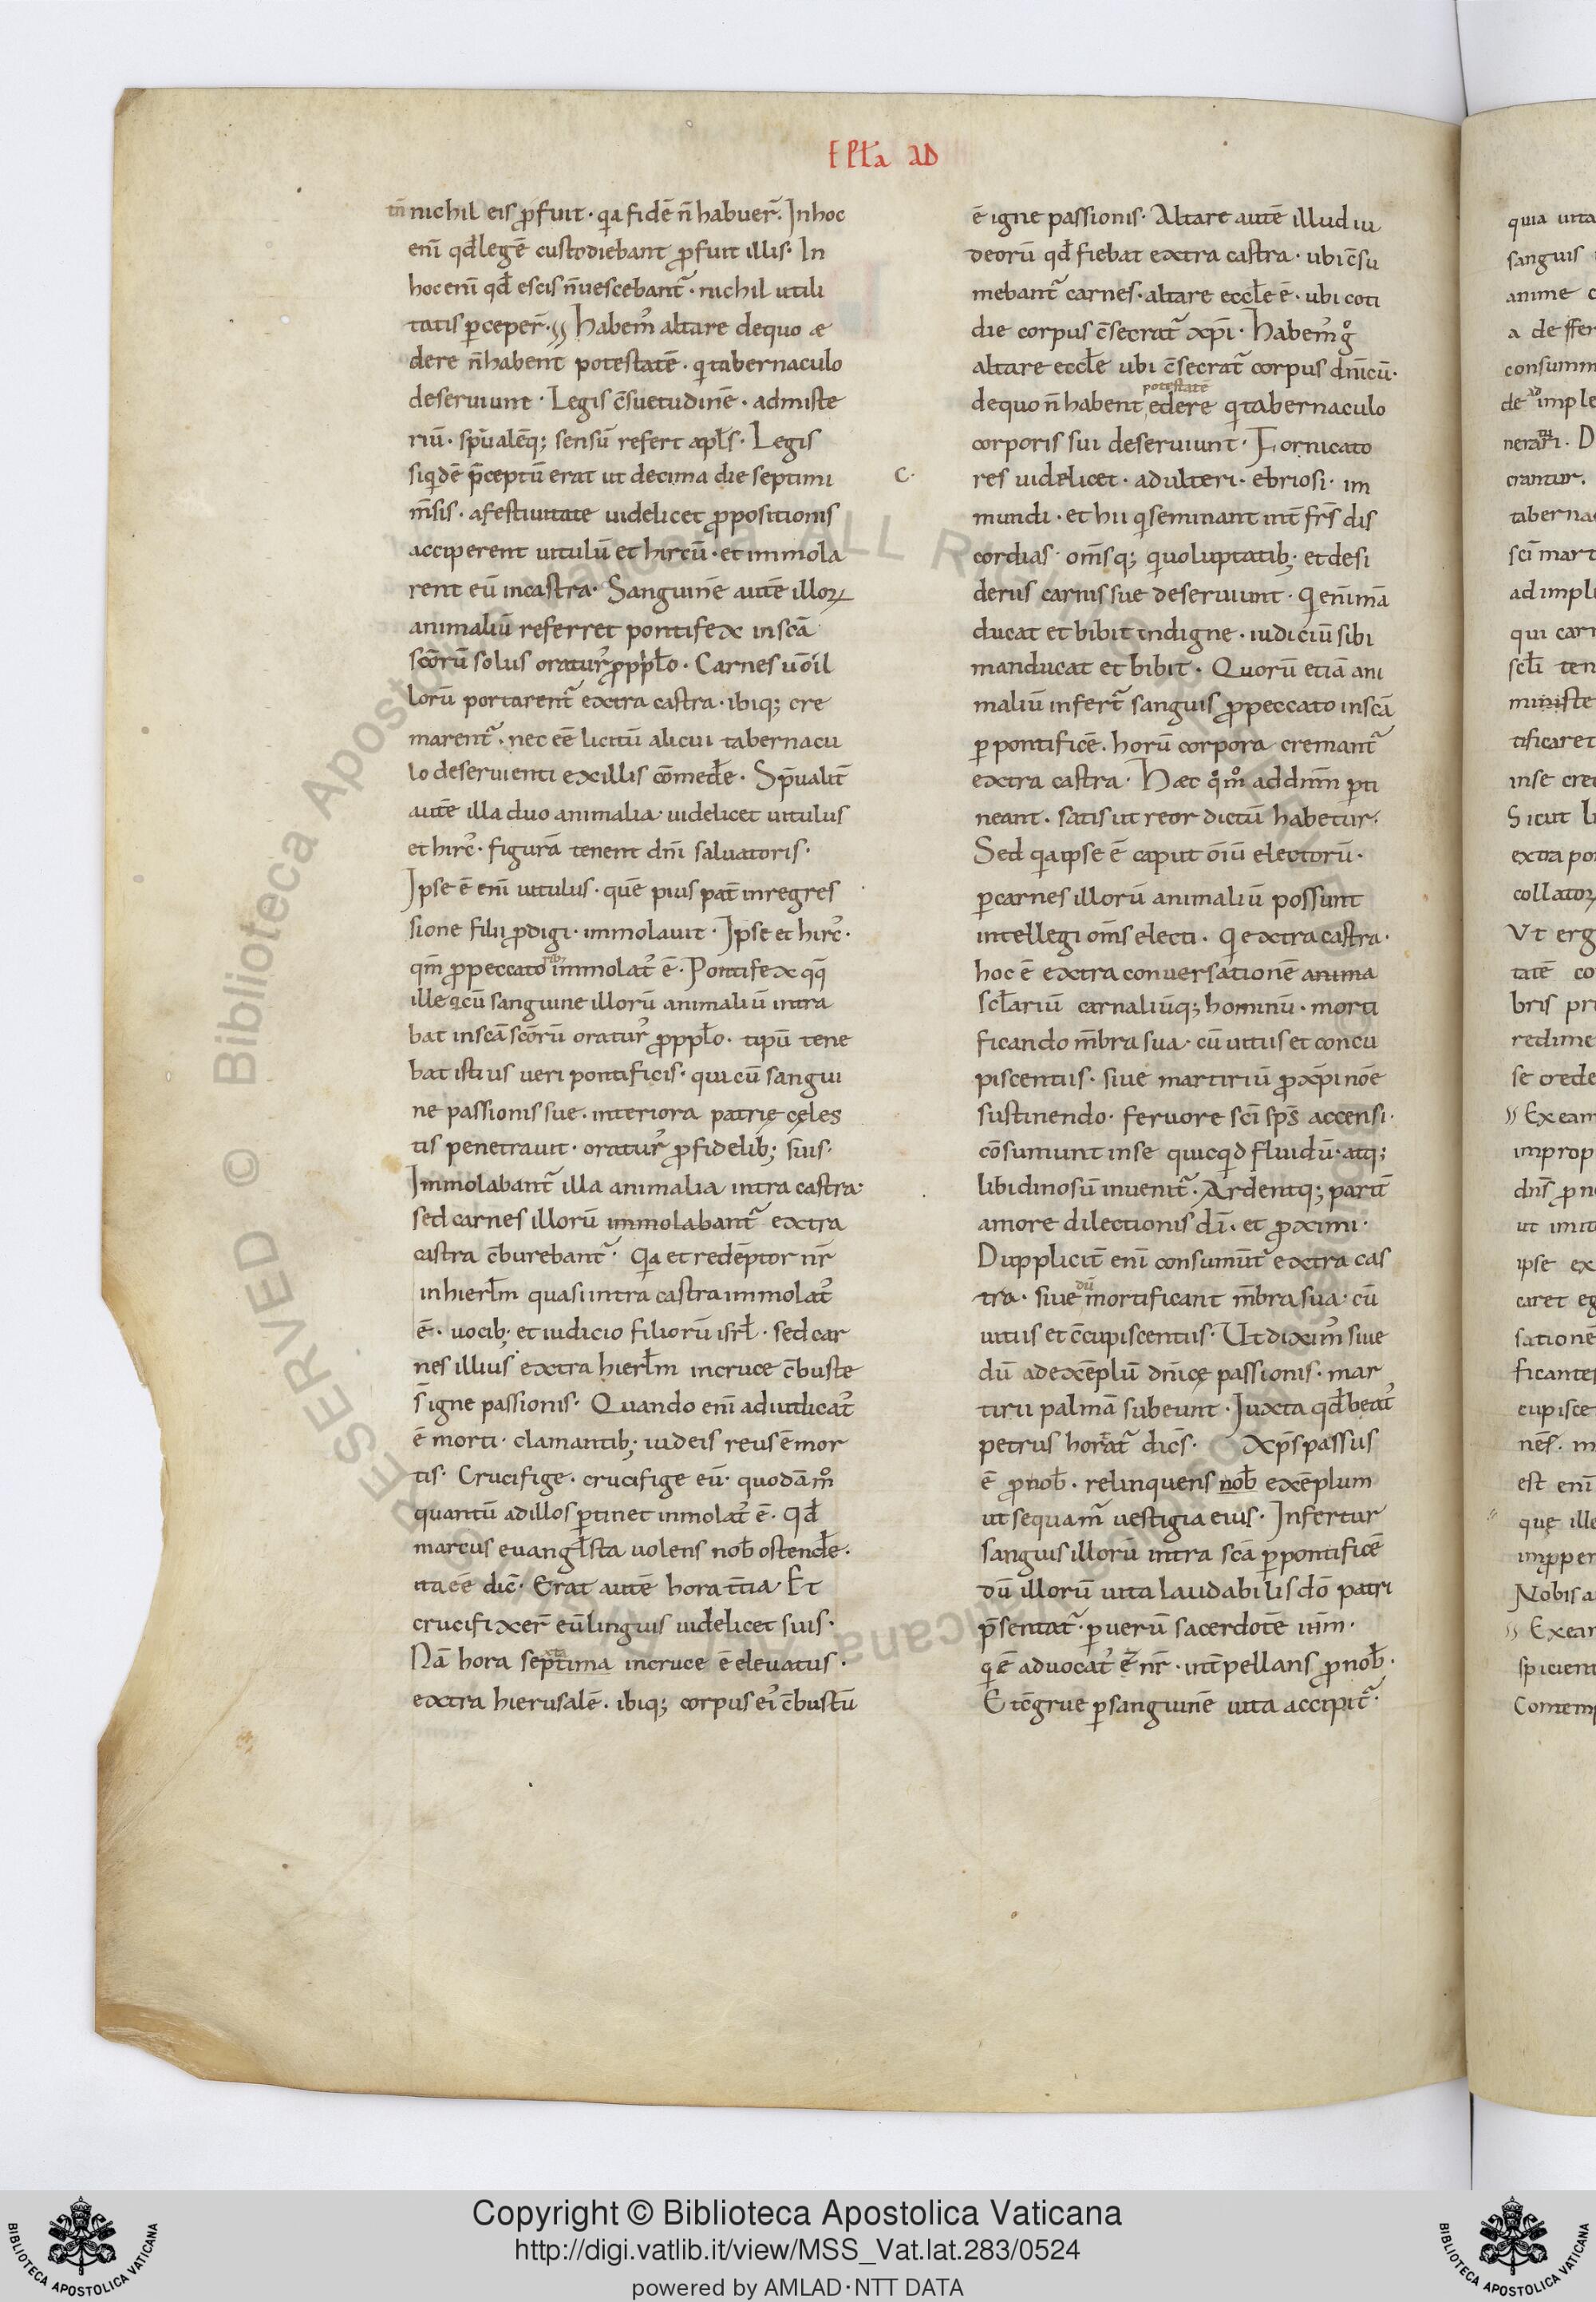 EPL̄a AD
tn̄ nichil eis ꝓfuit· qa fidē n̄ habuer̄. In hoc
enī qd̄ legē custodiebant ꝓfuit illis· In
hoc enī qd̄ escis n̄ uescebant᷑· nichil utili
tatis ꝑceper̄·҂ Habem᷒ altare de quo æ
dere n̄ habent potestatē· qi tabernaculo
deseruiunt· Legis c̄suetudinē· ad miste
riū· sp̄ualeq̨; sensū refert apl̄s· Legis
siqidē p̄ceptū erat ut decima die septimi
m̄sis· a festiuitate uidelicet ꝓpositionis
acciperent uitulū et hircū· et immola
rent eū in castra· Sanguinē autē illoꝝ
animaliū referret pontifex in scā
scōrū solus oratur᷒ ꝓ ppl̄o· Carnes uō il
lorū portarent᷑ extra castra· ibiq; cre
marent᷑· nec eē licitū alicui tabernacu
lo deseruienti ex illis cōmedēe· Sp̄ualit̄
autē illa duo animalia· uidelicet uitulus
et hirc᷒· figurā tenent dn̄i saluatoris·
Ipse ē enī uitulus· quē pius pat̄ in regres
sione filii ꝓdigi· immolauit· Ipse et hirc᷒·
qm̄ ꝓ peccato immolat᷒ ē· Pontifex qq̄
ille q cū sanguine illorū animaliū intra
bat in scā scōrū oratur᷒ ꝓ ppl̄o· tipū tene
bat istius ueri pontificis· qui cū sangui
ne passionis sue· interiora patrię cęles
tis penetrauit· oratur᷒ ꝓ fidelib; suis·
Immolabant᷑ illa animalia intra castra·
sed carnes illorū immolabant᷑ extra
castra c̄burebant᷑· Qa et redēptor nr̄
in hierl̄m quasi intra castra immolat᷒
ē· uocib; et iudicio filiorū isrl̄· sed car
nes illius extra hierl̄m in cruce c̄buste
s̄ igne passionis· Quando enī adiudicat᷒
ē morti· clamantib; iudeis reus ē mor
tis· Crucifige· crucifige eū· quodā m̊
quantū ad illos ꝑtinet inmolat᷒ ē· Qd̄
marcus euangl̄sta uolens nob̄ ostendēe·
ita eē dic̄· Erat autē hora t̄tia· Et
crucifixer̄ eū linguis uidelicet suis·
Nā hora septima in cruce ē eleuatus·
extra hierusalē· ibiq; corpus ei᷒ c̄bustū
C·
ē igne passionis· Altare autē illud iu
deorū qd̄ fiebat extra castra· ubi c̄su
mebant᷑ carnes· altare eccl̄e ē· ubi coti
die corpus c̄secrat᷑ xp̄i· Habem᷒ g̊
altare eccl̄e ubi c̄secrat᷑ corpus dn̄icū·
potestatē
de quo n̄ habent edere qi tabernaculo
corporis sui deseruiunt· Fornicato
res uidelicet· adulteri· ebriosi· im
mundi· et hii qi seminant int̄ fr̄s dis
cordias· om̄sq; qi uoluptatib; et desi
deriis carnis sue deseruiunt· Qi enī mā
ducat et bibit indigne· iudiciū sibi
manducat et bibit· Quorū etiā ani
maliū infert᷑ sanguis ꝓ peccato in scā
ꝑ pontificē· horū corpora cremant᷑
extra castra· Hæc qͦm̊ ad dnm̄ ꝑti
neant· satis ut reor dictū habetur·
Sed qa ipse ē caput oīū electorū·
ꝑ carnes illorū animaliū possunt
intellegi om̄s electi· Qi extra castra·
hoc ē extra conuersationē anima
scl̄ariū carnaliūq; hominū· morti
ficando m̄bra sua· cū uitiis et concu
piscentiis· siue martiriū ꝓ xp̄i noīe
sustinendo· feruore sc̄i sp̄s accensi·
cōsumunt in se quicqid fluidū· atq;
libidinosū inuenit᷑· Ardentq; parit̄
amore dilectionis dī· et ꝓximi·
Dupplicit̄ enī consumūt᷑ extra cas
dū
tra· siue mortificant m̄bra sua· cū
uitiis et c̄cupiscentiis· Ut dixim᷒ siue
dū ad exēplū dn̄icę passionis· mar
tirii palmā subeunt· Iuxta qd̄ beat᷒
petrus horat᷑ dicēs· Xp̄s passus
ē ꝓ nob̄· relinquens nob̄ exēplum
ut sequam᷑ uestigia eius· Infertur
sanguis illorū intra scā ꝑ pontificē
dū illorū uita laudabilis dō patri
p̄sentat᷑· ꝑ uerū sacerdotē ih̄m·
qi ē aduocat᷒ ē nr̄· int̄pellans ꝓ nob̄·
Et c̄grue ꝑ sanguinē uita accipit᷑·
Copyright © Biblioteca Apostolica Vaticana
http://digi.vatlib.it/view/MSS_Vat.lat.283/0524
powered by AMLAD·NTT DATA